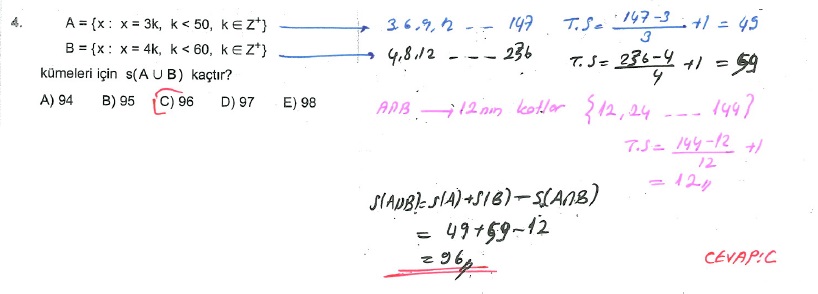 4. A = {x : x = 3k, k < 50, k ∈ Z⁺} → 3.6.9.12 - - ... 147 T.S = (147-3)/3 + 1 = 49
B = {x : x = 4k, k < 60, k ∈ Z⁺} → 4,8,12 - - - .. 236 T.S = (236-4)/4 + 1 = 59
kümeleri için s(A ∪ B) kaçtır?
A) 94 B) 95 C) 96 D) 97 E) 98
A∩B → 12 nin katları {12, 24 ---- 144}
T.S = (144-12)/12 + 1
= 12,,
s(A∪B) = s(A) + s(B) - s(A∩B)
= 49 + 59 - 12
= 96,,
CEVAP: C